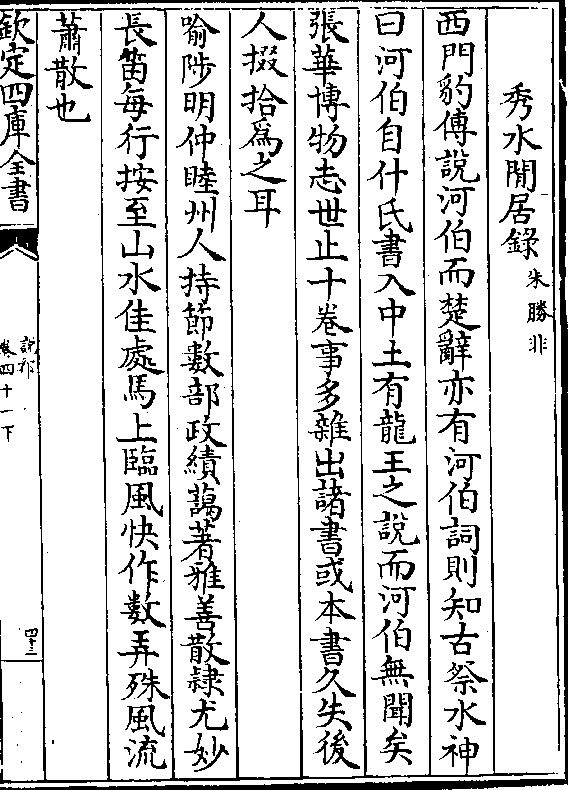 秀水閒居錄 朱勝非
西門豹傅說河伯而楚辭亦有河伯詞則知古祭水神
曰河伯自什氏書入中土有龍王之說而河伯無聞矣
張華博物志世止十卷事多雜出諸書或本書久失後
人掇拾爲之耳
喻陟明仲睦州人持節數部政績藹著雅善散隷尤妙
長笛每行按至山水佳處馬上臨風快作數弄殊風流
蕭散也
欽定四庫全書
說郛
卷四十一下
四十三